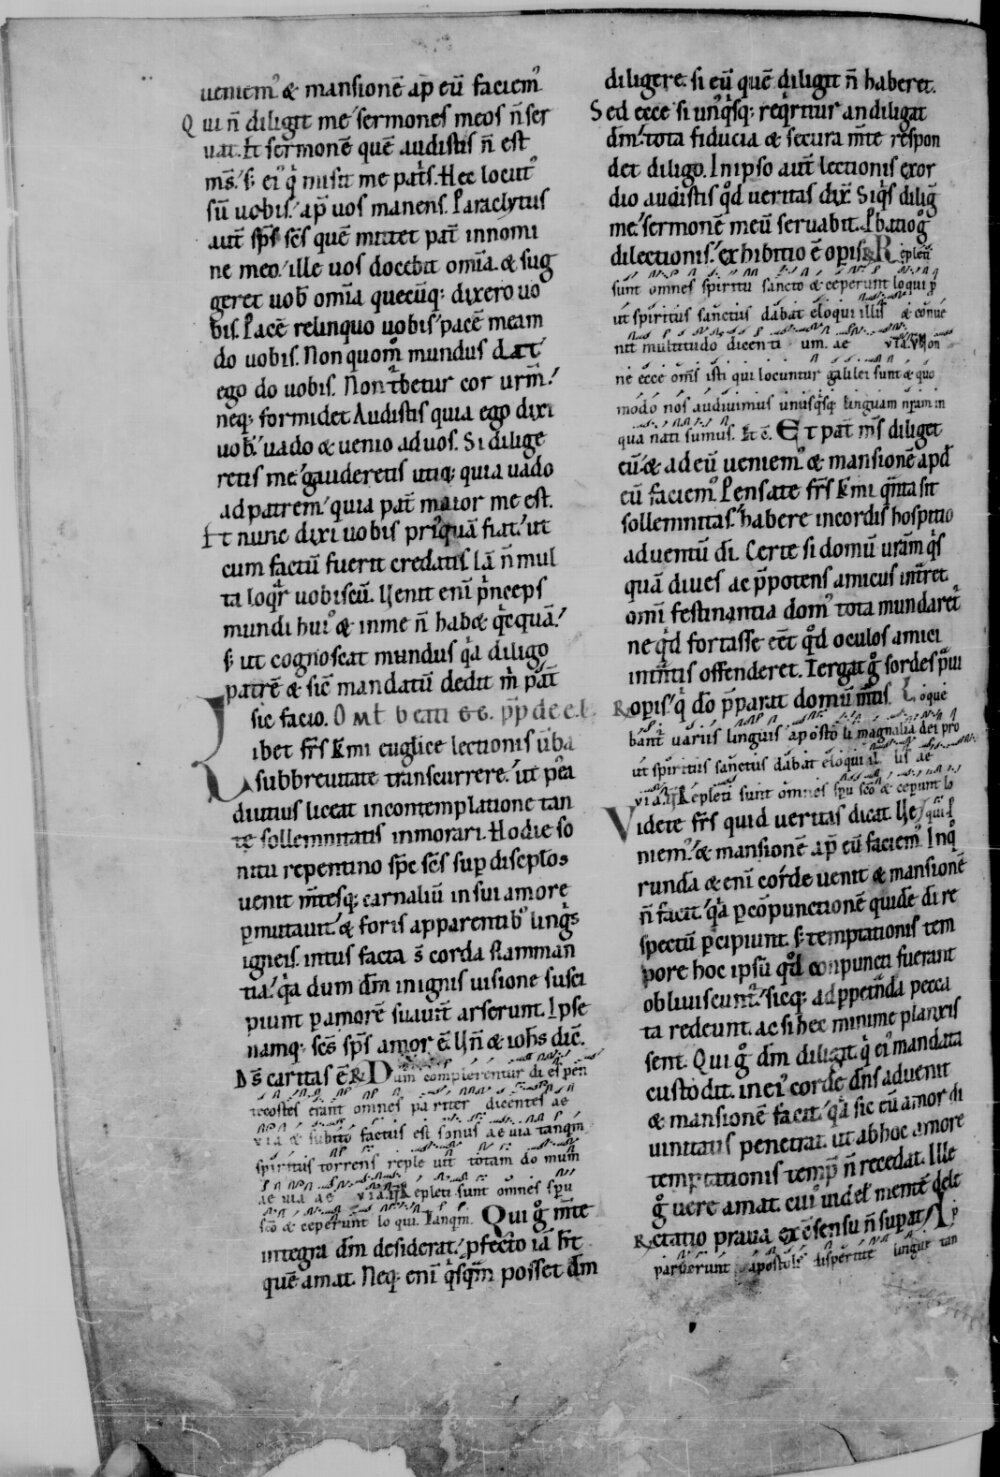 ueniem᷒ & mansionē ap̄ eū faciem᷒
Qui n̄ diligit me sermones meos n̄ ser
uat. Et sermonē quē audistis n̄ est
ms̄. s; ei᷒ qͥ misit me patˢ. Hec locut᷒
sū uobis. ap̄ uos manens. Paraclytus
aut̄ sp̄s sc̄s quē mittet pat̄ in nomi
ne meo. ille uos docebit om̄ia. & sug
geret uob̄ om̄ia quecūq; dixero uo
bis. Pacē relinquo uobis. pacē meam
do uobis. Non quom̊ mundus dat
ego do uobis. Non t̄betur cor urm̄.
neq; formidet Audistis quia ego dixi
uob̄. uado & uenio ad uos. Si dilige
retis me. gauderetis utiq; quia uado
ad patrem. quia pat̄ maior me est.
Et nunc dixi uobis pri᷒quā fiat. ut
cum factū fuerit credatis. Iā n̄ mul
ta loqr̄ uobiscū. Uenit eni pͥnceps
mundi hui᷒ & in me n̄ habet qͥcquā.
s; ut cognoscat mundus qͣ diligo
patrē & sic mandatū dedit m̄ pat̄
sic facio. OMł beati GG. pp̄ de e. l.
Libet fr̄s k̄mi euglice lectionis ūba
sub breuitate transcurrere. ut p̄ea
diutius liceat in contemplatione tan
te sollemnitatis inmorari. Hodie so
nitu repentino sp̄c sc̄s sup̄ disciplos
uenit m̄tesq; carnaliū in sui amore
ꝑmutauit. & foris apparentib᷒ linḡs
igneis. intus facta s̄ corda flamman
tia. qͣ dum dm̄ in ignis uisione susci
piunt ꝑ amorē suauit̄ arserunt. Ipse
namq; sc̄s sp̄s amor ē. Un̄ & ioh̄s dic̄.
Ds̄ caritas ē. R Dum complerentur dies pen
tecostes erant omnes pariter dicentes ae
via & subito factus est sonus aeuia tanqm̄
spiritus torrens repleuit totam domum
aeuia ae via. V Repleti sunt omnes sp̄u
sc̄o & ceperunt loqui. Tanqm̄. Qui g̊ m̄te
integra dm̄ desiderat. ꝓfecto iā h̄t
quē amat. Neq; eni qͥsqm̄ posset dm̄
diligere. si eū quē diligit n̄ haberet.
Sed ecce si un᷒qͥsq; reqͥritur an diligat
dm̄. tota fiducia & secura m̄te respon
det diligo. In ipso aut̄ lectionis exor
dio audistis qd̊ ueritas dix̄. Siqͥs diliḡ
me. sermonē meū seruabit. Pbatio g̊
dilectionis. exhibitio ē opis. R Repleti
sunt omnes spiritu sancto & ceperunt loqui p̄
ut spiritus sanctus dabat eloqui illis & conue
nit multitudo dicentium. ae via. V Non
ne ecce om̄s isti qui locuntur galilei sunt & quo
modo nos audiuimus unusqͥsq; linguam nr̄am in
qua nati sumus. Et c̄. Et pat̄ ms̄ diliget
eū. & ad eū ueniem᷒ & mansionē apd̄
eū faciem᷒. Pensate fr̄s k̄mi qͣnta sit
sollemnitas. habere in cordis hospitio
aduentū di. Certe si domū uram̄ qͥs
quā diues ac p̄potens amicus int̄ret.
omi festinantia dom᷒ tota mundaret᷒
ne qͥd fortasse eēt qd̊ oculos amici
int̄ntis offenderet. Tergat g̊ sordes p̄ui
opis. qͥ do p̄parat domū m̄tis. R Loque
bant᷒ variis linguis apostoli magnalia dei pro
ut spiritus sanctus dabat eloqui illis ae
via. V Repleti sunt omnes sp̄u sc̄o & ceperunt lo
Videte fr̄s quid ueritas dicat. Ue qui. P
niem᷒. & mansionē ap̄ eū faciem᷒. In qͦ
runda & eni corde uenit & mansionē
n̄ facit. qͣ ꝑ cōpunctionē quidē di re
spectū ꝑcipiunt. s; temptationis tem
pore hoc ipsū qd̊ conpuncti fuerant
obliuiscunt᷒. sicq; ad ꝑpetn̄da pecca
ta redeunt. ac si hec minime planxis
sent. Qui g̊ dm̄ diligit. qͥ ei᷒ mandata
custodit. in ei᷒ corde dn̄s aduenit
& mansionē facit. qͣ sic eū amor di
uinitatis penetrat. ut ab hoc amore
temptationis temp̄ n̄ recedat. Ille
g̊ uere amat. cui᷒ uidel᷒ mentē dele
ctatio praua ex c̄sensu n̄ supat. R Ap
paruerunt apostolis dispertite lingue tan